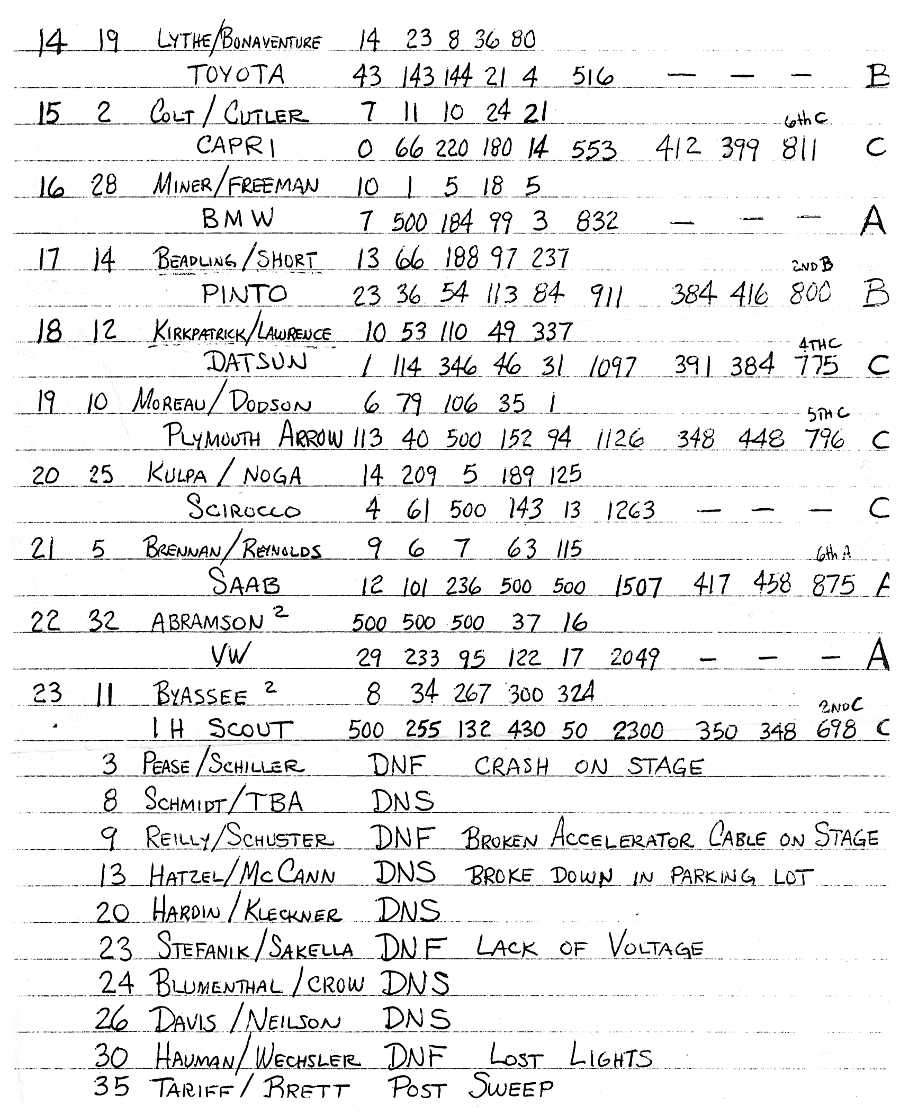 14 19 LYTHE/BONAVENTURE 14 23 8 36 80
TOYOTA 43 143 144 21 4 516 — — — B
15 2 COLT / CUTLER 7 11 10 24 21
6th C
CAPRI 0 66 220 180 14 553 412 399 811 C
16 28 MINER/FREEMAN 10 1 5 18 5
BMW 7 500 184 99 3 832 — — — A
17 14 BEADLING/SHORT 13 66 188 97 237
2ND B
PINTO 23 36 54 113 84 911 384 416 800 B
18 12 KIRKPATRICK/LAWRENCE 10 53 110 49 337
4TH C
DATSUN 1 114 346 46 31 1097 391 384 775 C
19 10 MOREAU/DODSON 6 79 106 35 1
5TH C
PLYMOUTH ARROW 113 40 500 152 94 1126 348 448 796 C
20 25 KULPA / NOGA 14 209 5 189 125
SCIROCCO 4 61 500 143 13 1263 — — — C
21 5 BRENNAN/REYNOLDS 9 6 7 63 115
6th A
SAAB 12 101 236 500 500 1507 417 458 875 A
22 32 ABRAMSON ² 500 500 500 37 16
VW 29 233 95 122 17 2049 — — — A
23 11 BYASSEE ² 8 34 267 300 324
2ND C
IH SCOUT 500 255 132 430 50 2300 350 348 698 C
3 PEASE/SCHILLER DNF CRASH ON STAGE
8 SCHMIDT/TBA DNS
9 REILLY/SCHUSTER DNF BROKEN ACCELERATOR CABLE ON STAGE
13 HATZEL/McCANN DNS BROKE DOWN IN PARKING LOT
20 HARDIN/KLECKNER DNS
23 STEFANIK/SAKELLA DNF LACK OF VOLTAGE
24 BLUMENTHAL/CROW DNS
26 DAVIS/NEILSON DNS
30 HAUMAN/WECHSLER DNF LOST LIGHTS
35 TARIFF/BRETT POST SWEEP